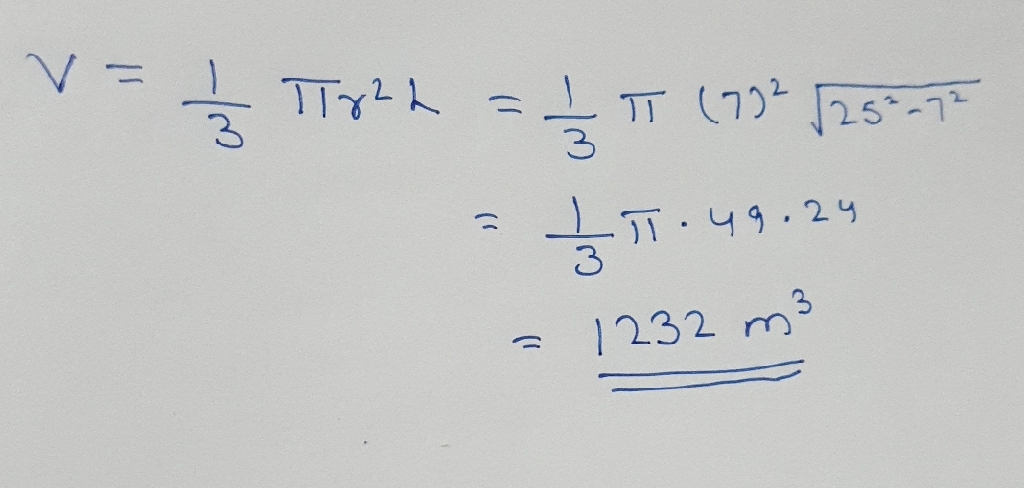 V = 1/3 πr²h = 1/3 π (7)² √(25²-7²)
= 1/3 π . 49 . 24
= 1232 m³